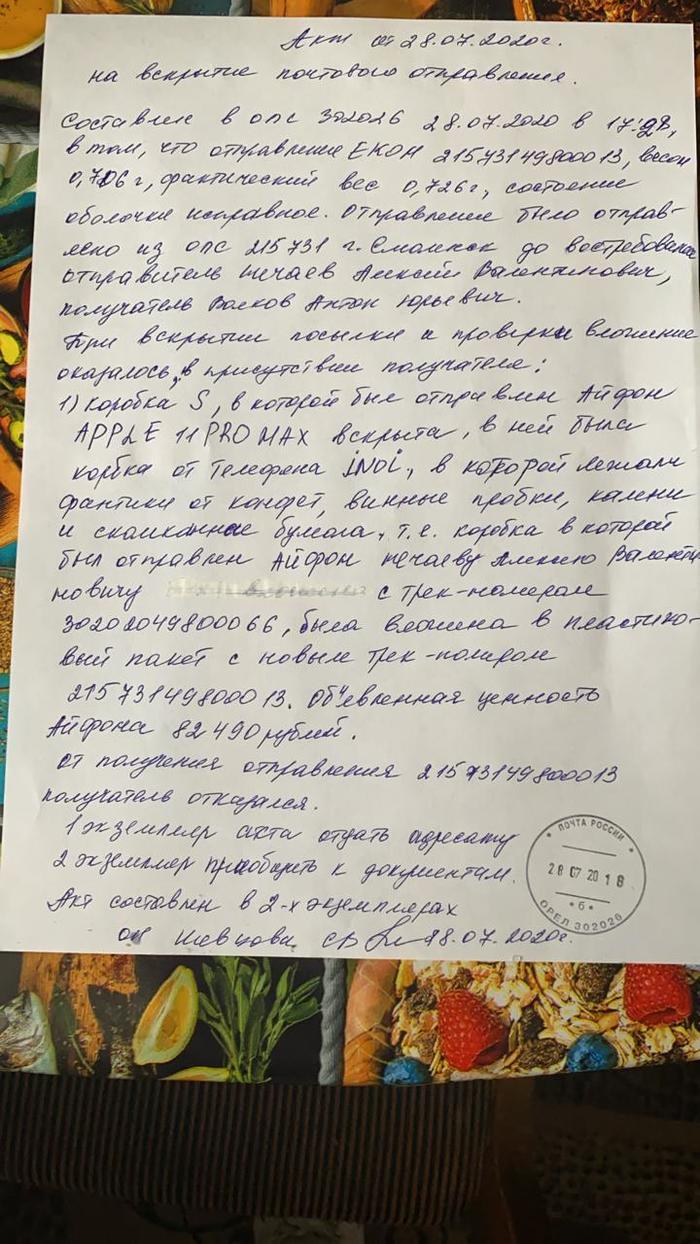 Акт от 28.07.2020г.
на вскрытие почтового отправления.
Составлен в ОПС 302026 28.07.2020 в 17:
в том, что отправление ЕКОМ 21573149800013, весом
0,706г, фактический вес 0,726г, состояние
оболочки исправное. Отправление было отправ-
лено из ОПС 215731 г. Смоленск до востребования
отправитель Нечаев Алексей Валентинович,
получатель Волков Антон Юрьевич.
При вскрытии посылки и проверки вложение
оказалось, в присутствии получателя:
1) коробка S, в которой был отправлен Айфон
APPLE 11 PRO MAX вскрыта, в ней была
коробка от телефона INOI, в которой лежали
фантики от конфет, винные пробки, камени
и скомканная бумага, т.е. коробка в которой
был отправлен Айфон Нечаеву Алексею Валенти
новичу с трек-номером
30202049800066, была вложена в пластико-
вый пакет с новым трек-номером
21573149800013. Объевленная ценность
Айфона 82490 рублей.
От получения отправления 21573149800013
получатель отказался.
1 экземпляр акта отдать адресату
2 экземпляр приобщить к документам.
Акт составлен в 2-х экземплярах
Шевцова 28.07.2020г.
ПОЧТА РОССИИ
28 07 20 18
б
ОРЕЛ 302026